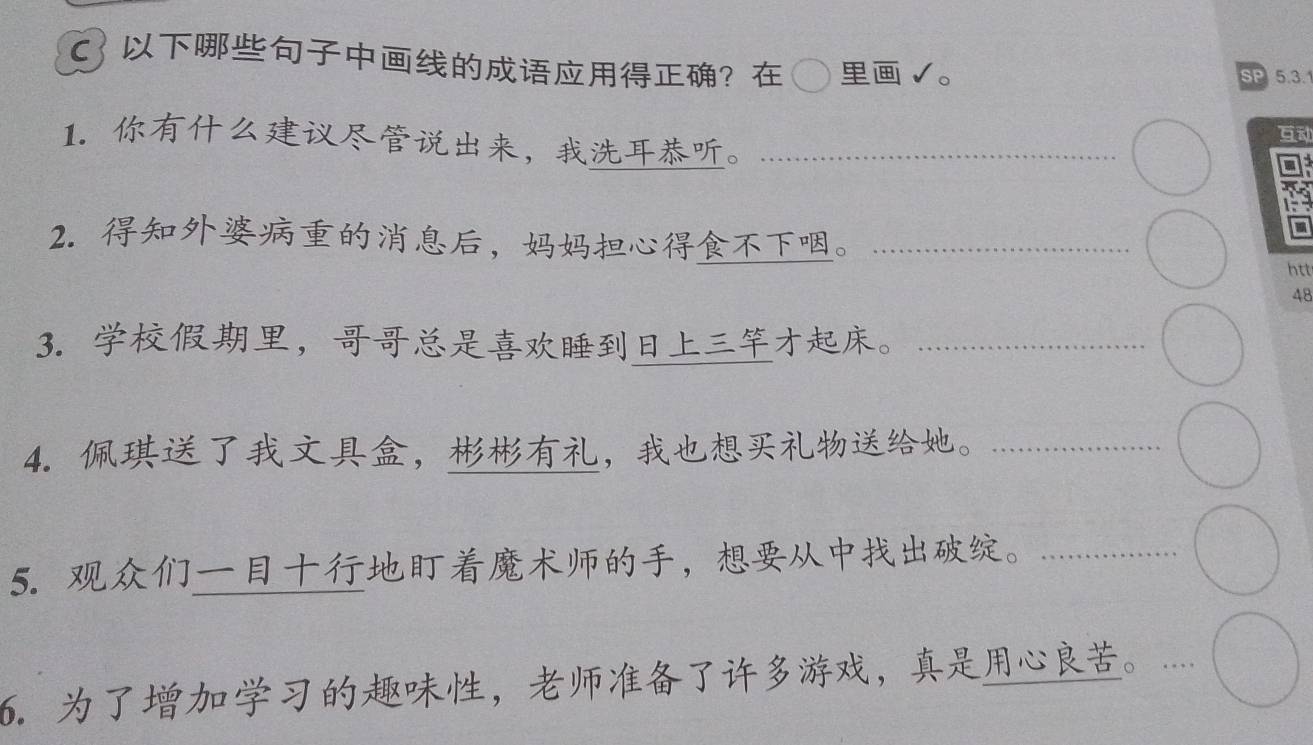 C 以下哪些句子中画线的成语应用得正确？在 ○ 里画 ✓。
SP 5.3.1
1. 你有什么建议尽管说出来，我洗耳恭听。
互动
2. 得知外婆病重的消息后，妈妈担心得食不下咽。
htt
48
3. 学校假期里，哥哥总是喜欢睡到日上三竿才起床。
4. 佩琪送了我文具盒，彬彬有礼，我也想买礼物送给她。
5. 观众们一目十行地盯着魔术师的手，想要从中找出破绽。
6. 为了增加学习的趣味性，老师准备了许多游戏，真是用心良苦。